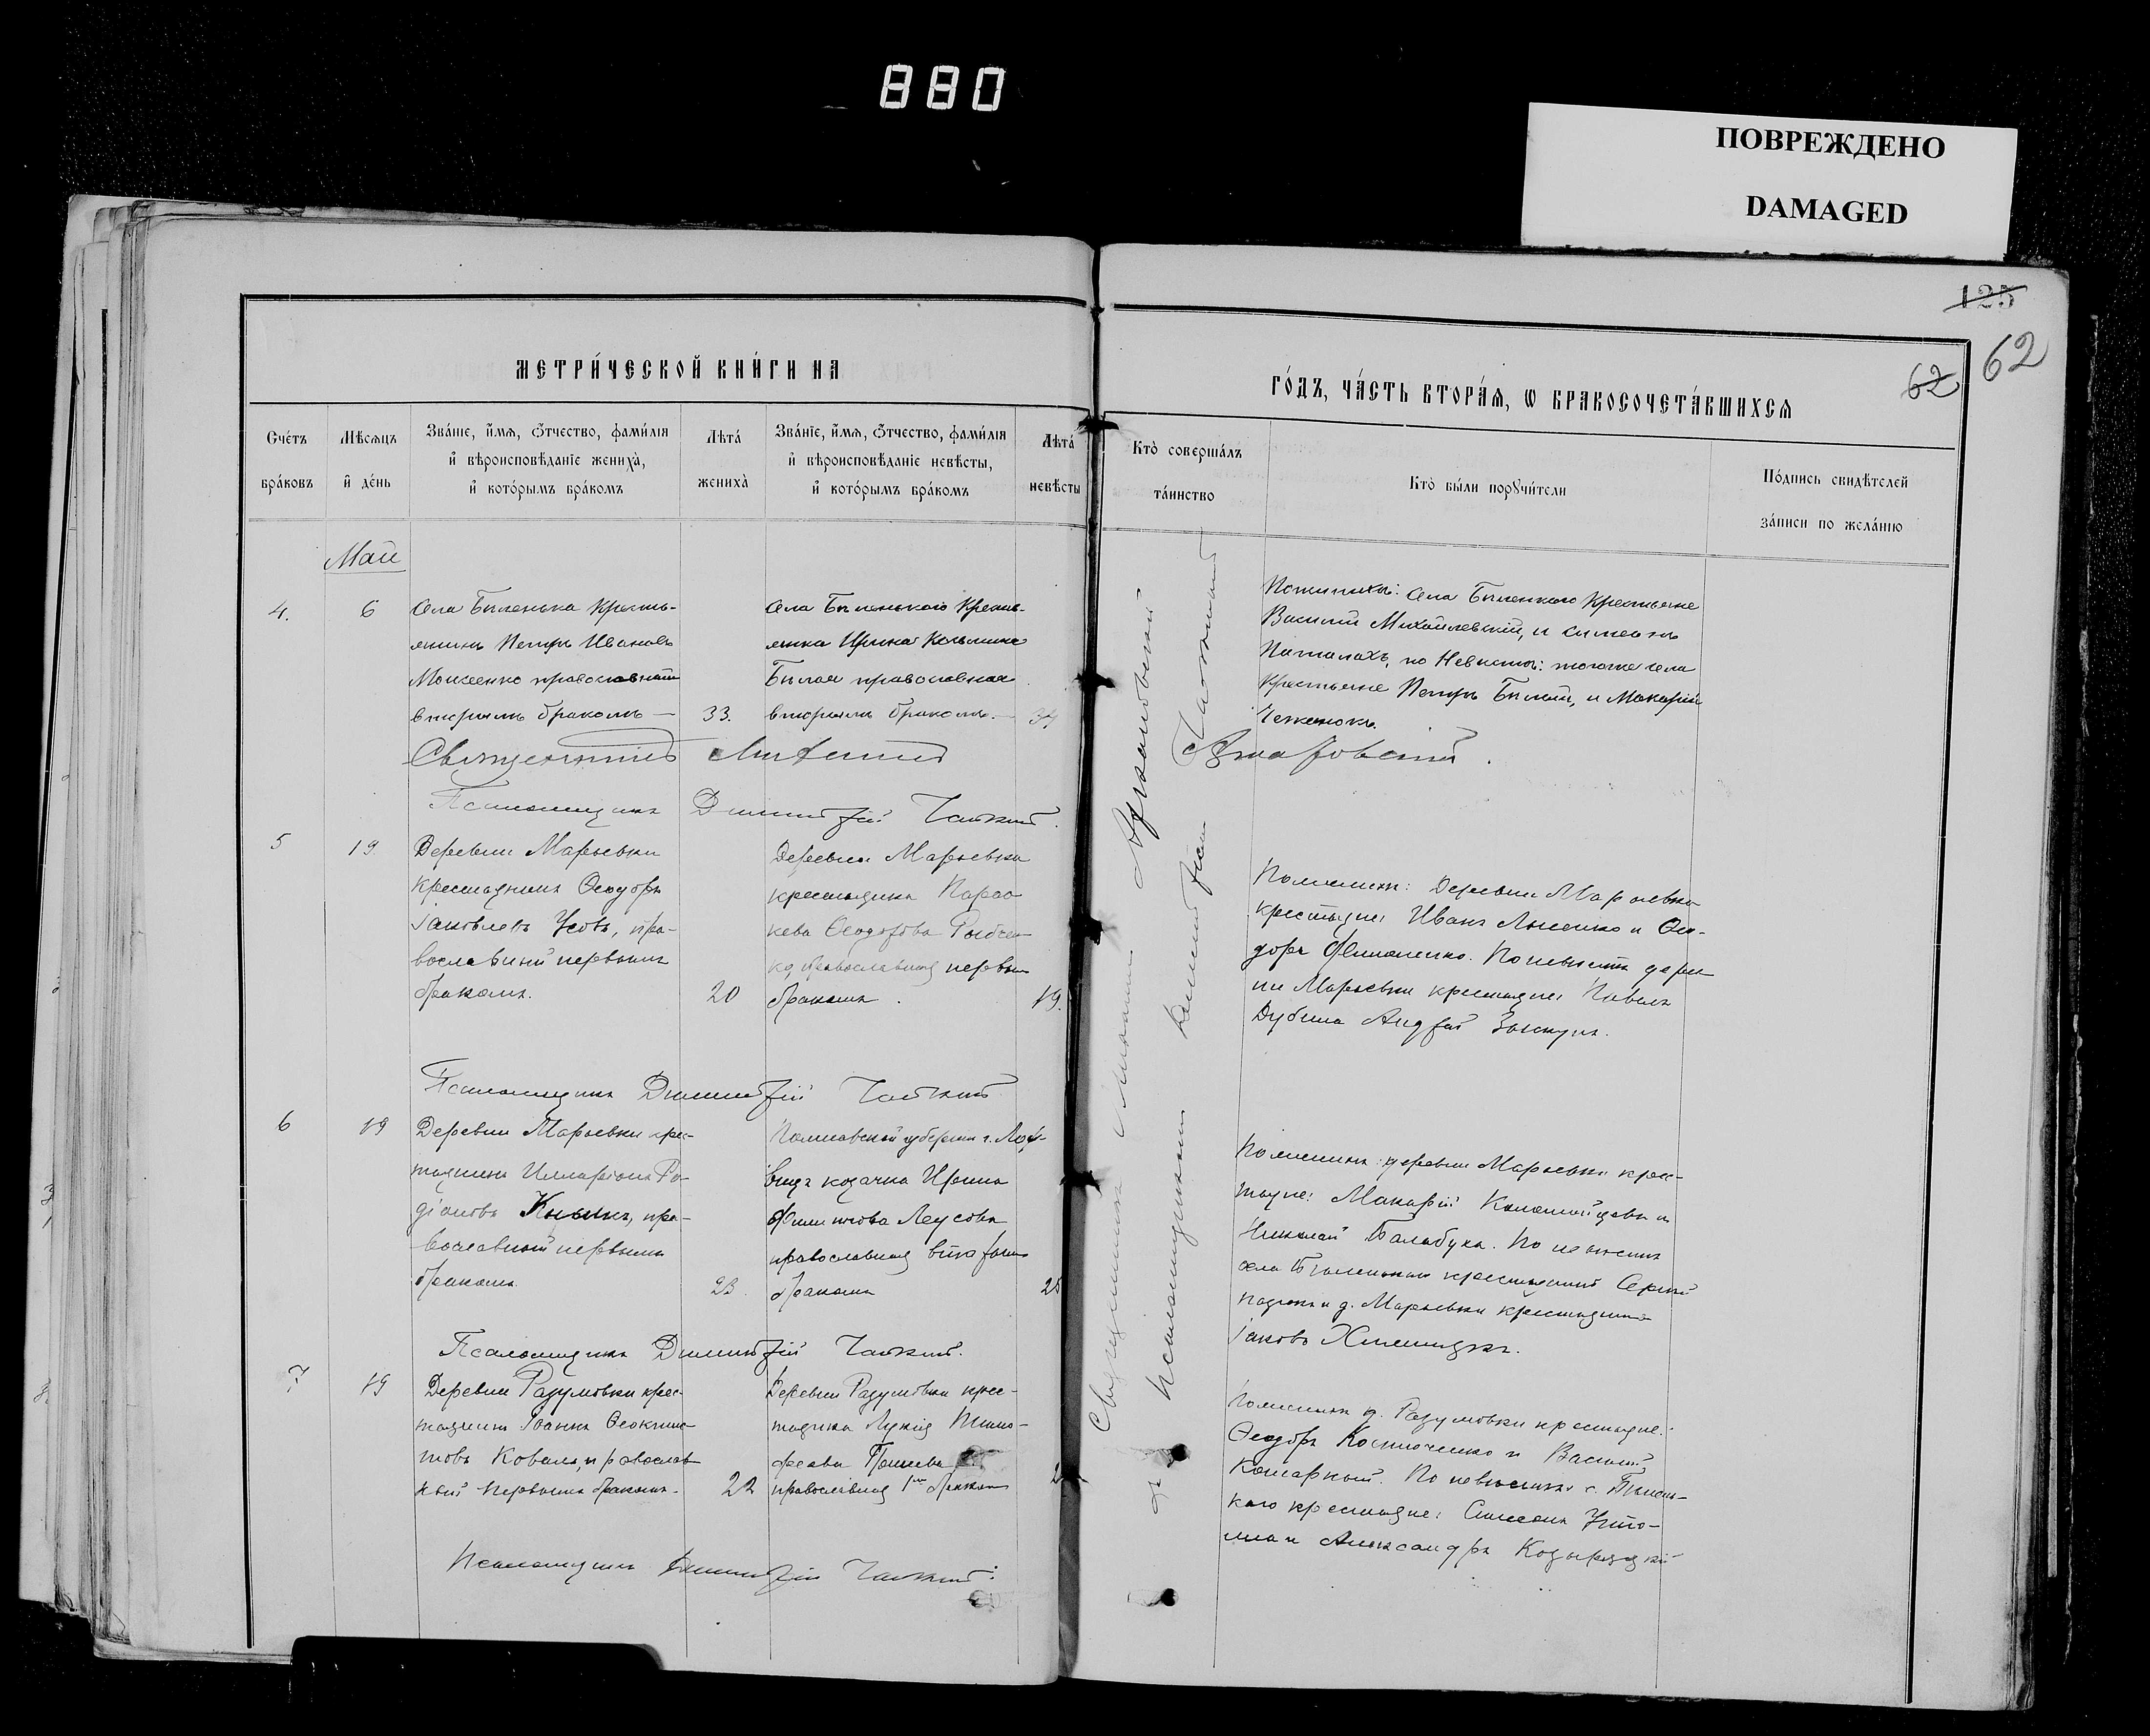 880
ПОВРЕЖДЕНО
DAMAGED
125
62
62
МЕТРИ́ЧЕСКОЙ КНИ́ГИ НА
ГО́ДЪ, ЧА́СТЬ ВТОРА́Я, Ѡ БРАКОСОЧЕТА́ВШИХСЯ
Сче́тъ бра́ковъ
Мѣ́сяцъ и҆ де́нь
Зва́нїе, и҆́мя, ѻ҆́тчество, фами́лїя
и҆ вѣроисповѣ́данїе жениха̀,
и҆ кото́рымъ бра́комъ
Лѣта́ жениха̀
Зва́нїе, и҆́мя, ѻ҆́тчество, фами́лїя
и҆ вѣроисповѣ́данїе невѣ́сты,
и҆ кото́рымъ бра́комъ
Лѣта́ невѣ́сты
Кто̀ соверша́лъ
та́инство
Кто̀ бы́ли порꙋчи́тели
По́дпись свидѣ́телей
за́писи по жела́нїю
Май
4.
6
села Бѣленька Кресть-
янинъ Петръ Ивановъ
Моисеенко православный
вторымъ бракомъ —
33.
села Бѣленькаго Кресть-
янка Ирина Козьмина
Бѣлая православная
вторымъ бракомъ. —
34
По женихѣ: села Бѣленькаго Крестьяне
Василій Михайлевскій, и Симеонъ
по Невѣстѣ: тогоже села
Крестьяне Петръ Бѣлый, и Макарій
Священникъ
Псаломщикъ Димитрій
5
19
Деревни Марьевки
крестьянинъ Ѳеодоръ
Іаковлевъ Усовъ, пра-
вославный первымъ
бракомъ.
20
Деревни Марьевки
крестьянка Парас-
кева Ѳеодорова Рыбчен-
ко, православная первымъ
бракомъ.
19.
По женихѣ: Деревни Марьевки
крестьяне: Иванъ Лысенко и Ѳео-
доръ Филоненко. По невѣстѣ дерев-
ни Марьевки крестьяне: Павелъ
Дубина Андрей
Псаломщикъ Димитрій
6
19
Деревни Марьевки крес-
тьянинъ Илларіонъ Ро-
діоновъ пра-
вославный первымъ
бракомъ
23.
Полтавской губерніи г. Лох-
вицы козачка Ирина
Филиппова Леусова
православная вторымъ
бракомъ
25
По женихѣ: деревни Марьевки крес-
тьяне: Макарій Коломойцевъ и
Николай Балабуха. По невѣстѣ
села Бѣленькаго крестьянинъ Сергій
и д. Марьевки крестьянинъ
Іаковъ
Псаломщикъ Димитрій
7
19
Деревни Разумовки крес-
тьянинъ Іоаннъ Ѳеоктис-
товъ Коваль, православ-
ный первымъ бракомъ.
22
Деревни Разумовки крес-
тьянка Лукія Тимо-
феева
православная 1мъ бракомъ
По женихѣ д. Разумовки крестьяне:
Ѳеодоръ Костюченко и Василій
Комарный. По невѣстѣ с. Бѣлень-
каго крестьяне: Симеонъ
и Александръ
Псаломщикъ Димитрій
Священникъ
Псаломщикъ Димитрій